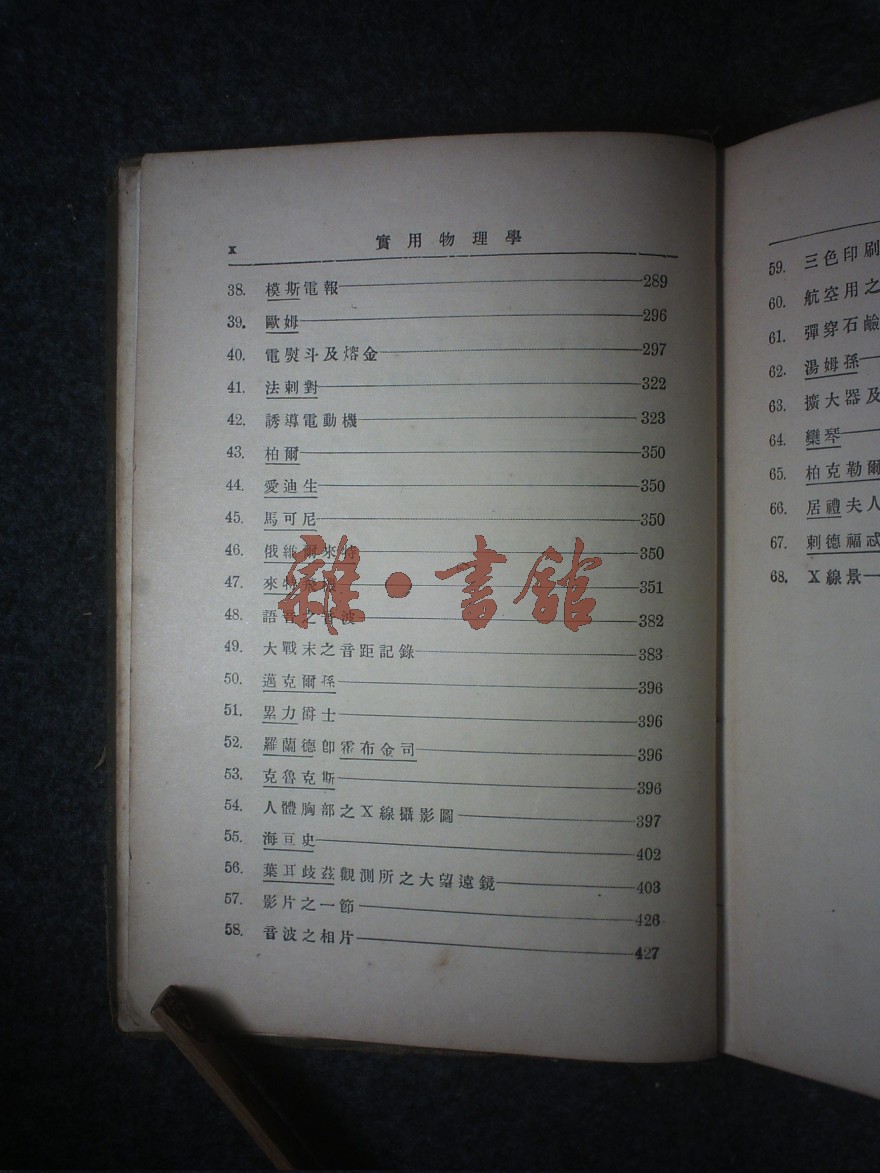 x 實用物理學
38. 模斯電報 289
39. 歐姆 296
40. 電熨斗及熔金 297
41. 法剌對 322
42. 誘導電動機 323
43. 柏爾 350
44. 愛迪生 350
45. 馬可尼 350
46. 俄維爾來特 350
47. 來特飛機 351
48. 語音之音波 382
49. 大戰末之音距記錄 383
50. 邁克爾孫 396
51. 累力爵士 396
52. 羅蘭德卽霍布金司 396
53. 克魯克斯 396
54. 人體胸部之X線攝影圖 397
55. 海亘史 402
56. 葉耳歧茲觀測所之大望遠鏡 403
57. 影片之一節 426
58. 音波之相片 427
雜·書館
59. 三色印刷
60. 航空用之
61. 彈穿石鹼
62. 湯姆孫
63. 擴大器及
64. 欒琴
65. 柏克勒爾
66. 居禮夫人
67. 剌德福
68. X線景